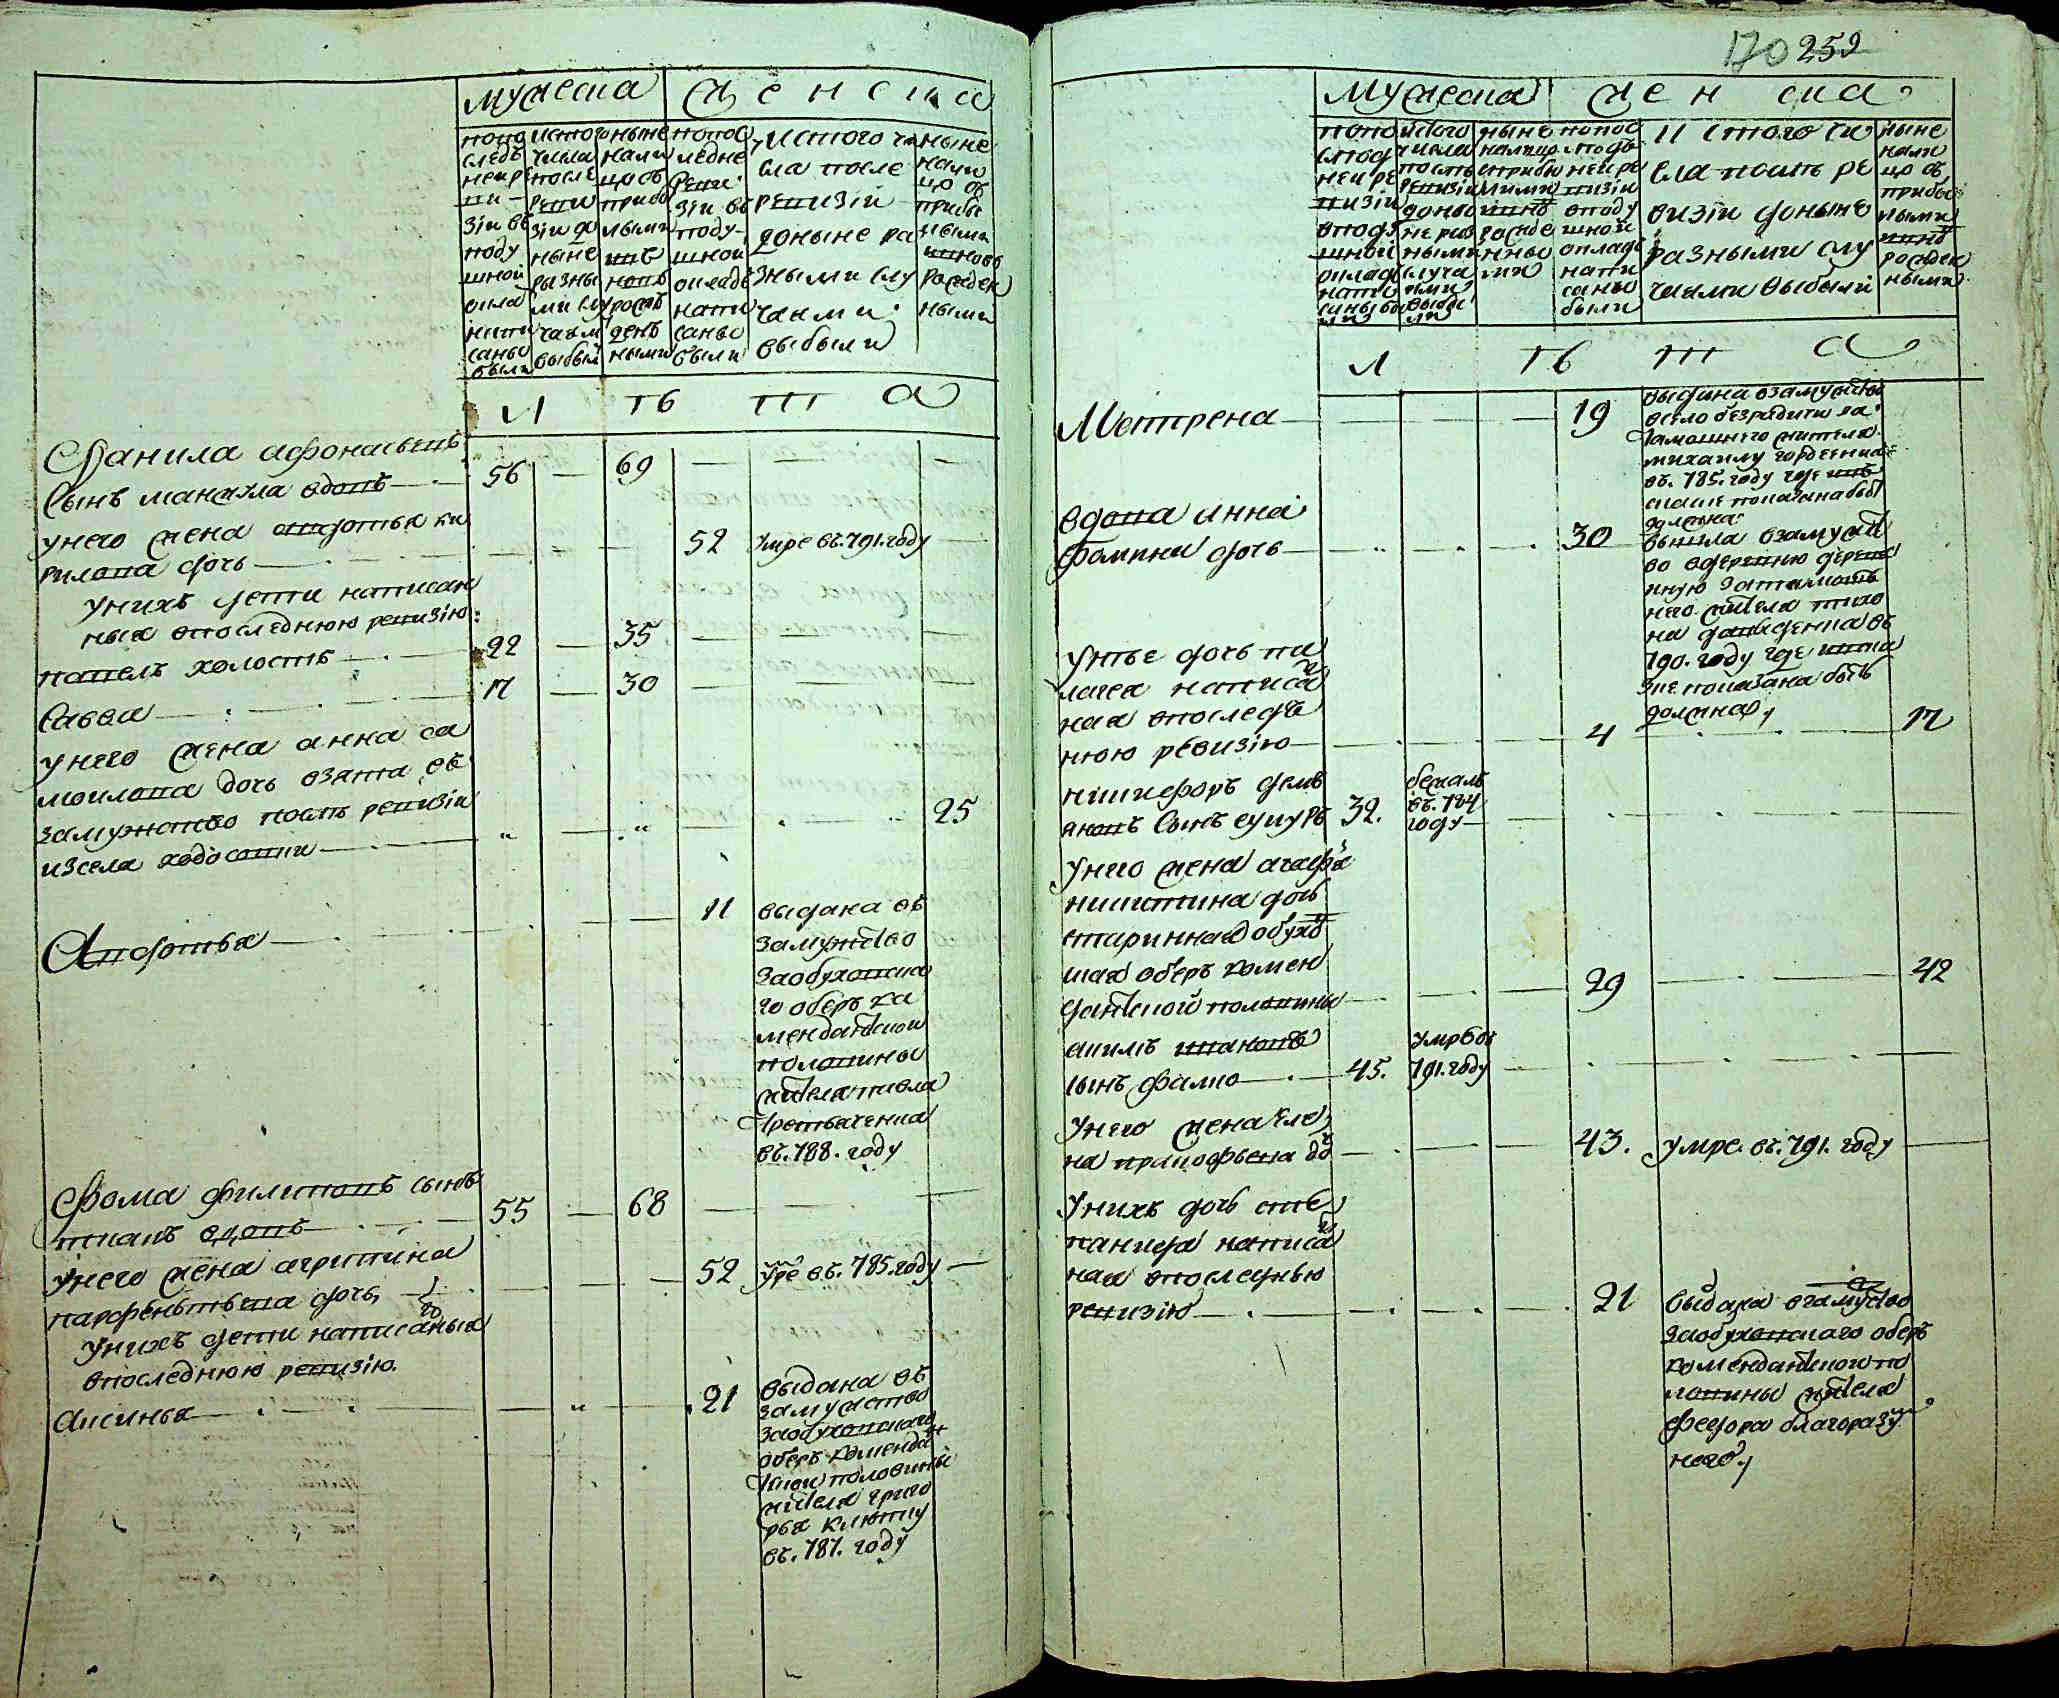 мужеска
женска
попо
следъ
ней ре
ви-
зіи въ
поду
шной
окла
напи
саны
были
ис того
числа
после
реви
зіи до
ныне
разны
ми слу
чаям
выбыли
ныне
нали
цо съ
прибы
лыми
и в
новь
рож
ден
ными
попос
ледне
реви
зіи въ
поду-
шной
окладъ
напи
саны
были
ис того чи
сла после
ревизіи
доныне ра
зными слу
чаями
выбыли
ныне
нали
цо съ
прибы
лыми
и вновь
рожден
ными
л ѣ т а
Данила афонасьевъ
сынъ вдовъ 56 69
у него жена авдотья ки
рилова дочь 52 умре въ.791.году
у нихъ дети написан
ныя впоследнюю ревизію:
павелъ холостъ 22 35
Савва 17 30
у него жена анна са
мойлова дочь взята въ
замужство послѣ ревизіи
из села ходосовки 25
Авдотья 11 выдана въ
замужство
за обуховска
го оберъ ка
мендантской
половины
жителя павла
въ.788.году
Фома филиповъ сынъ
вдовъ 55 68
У него жена агрипина
парфеньтьева дочь 52 умре въ.785.году
у нихъ дети написаныя
впоследнюю ревизію.
Аксинья 21 выдана въ
замужство
за обуховскаго
оберъ коменда
нтской половины
жителя григо
рья
въ.787.году
170 252
мужеска
жен ска
попо
след
ней ре
визіи
вподу
шной
оклад
напи
саны бы
ли
ис того
числа
послѣ
ревизіи
доны
не раз
ными
случа
ями
выбы
ли
ныне
налицо
съ прибы
лыми
и внов
рожде
нны
ми
попос
ледъ
ней ре
визіи
вподу
шной
окладъ
напи
саны
были
и с того чи
сла послѣ ре
визіи доныне
разными слу
чаями выбыли
ныне
нали
цо съ
прибы
лыми
и внов
рожден
ными
л ѣ т а
Мотрена 19 выдана взамужство
тамошнего жителя
михаилу гордеенка
въ.785.году где ивъ
сказке показана быть
должна
вдова анна
фомина дочь 30 вышла взамуж
во вдеревню дереви
ную за тамошъ
него жителя
на давиденка въ
790.году где ивска
зке показана быть
должна
у нее дочь пе
лагея написа
ная впоследъ
нюю ревизію 4 17
никифоръ демь
яновъ сынъ 32. бежалъ
въ.784
году
у него жена агафья
никитина дочь
старинная обухов
ская оберъ комен
дантской половины 29 42
акимъ ивановъ
сынъ 45. умре въ
791.году
У него жена Еле
на прокофьева до 43. умре въ.791.году
У нихъ дочь сте
панида написа
ная впоследнюю
ревизію 21 выдана взамужство
за обуховскаго оберъ
комендантского по
ловины жителя
федора благоразу
много